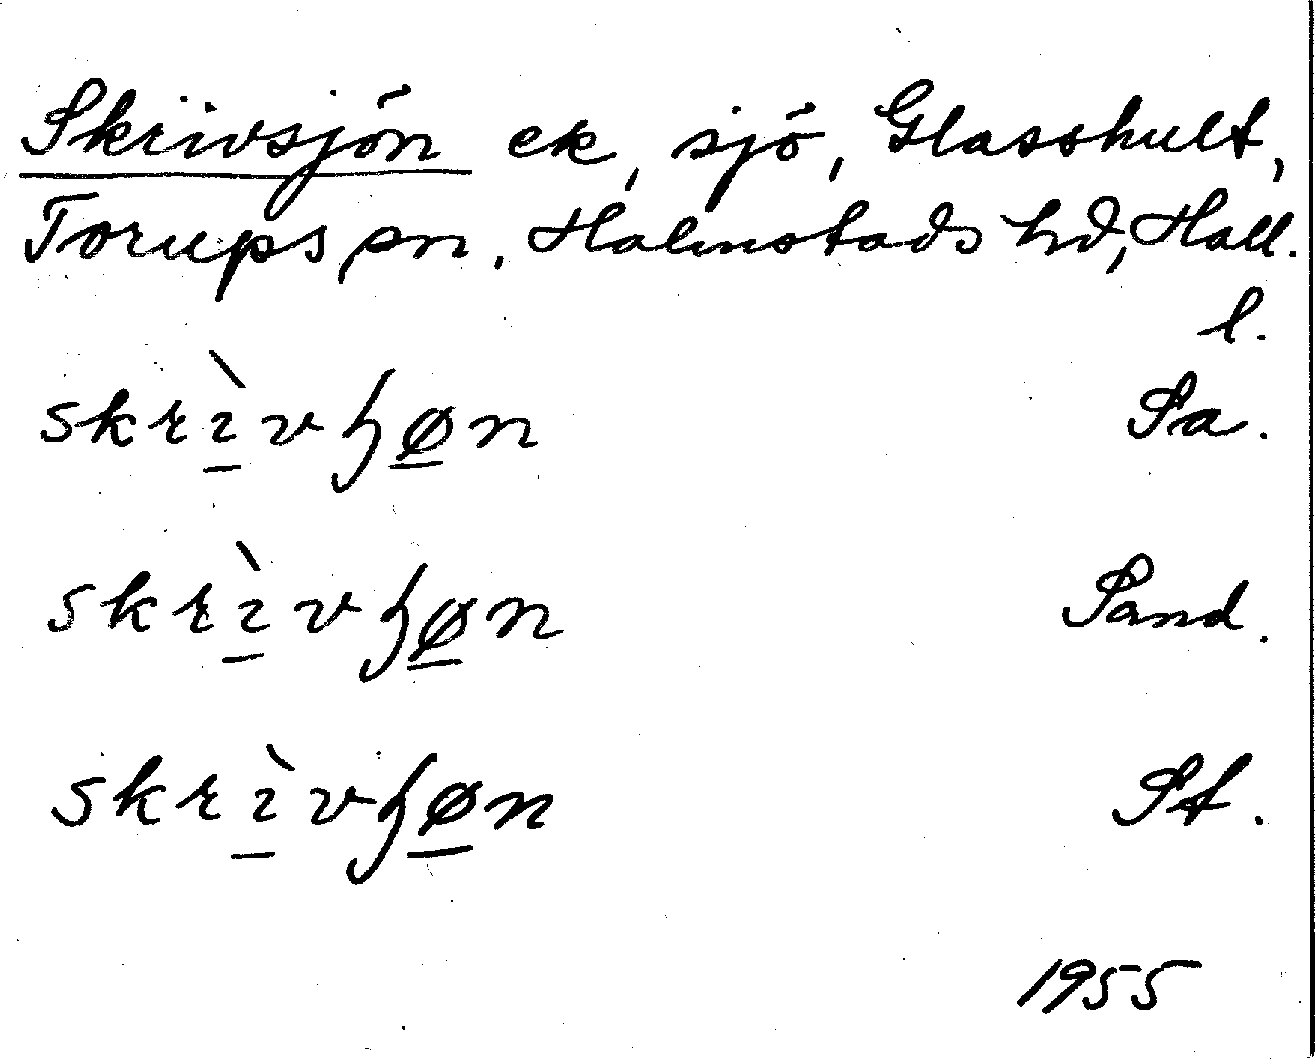 Skrivsjön ek, sjö, Glasshult,
Torups sn, Halmstads hd, Hall.
l.
skrìvɧøn Sa.
skrìvɧøn Sand.
skrìvɧøn St.
1955